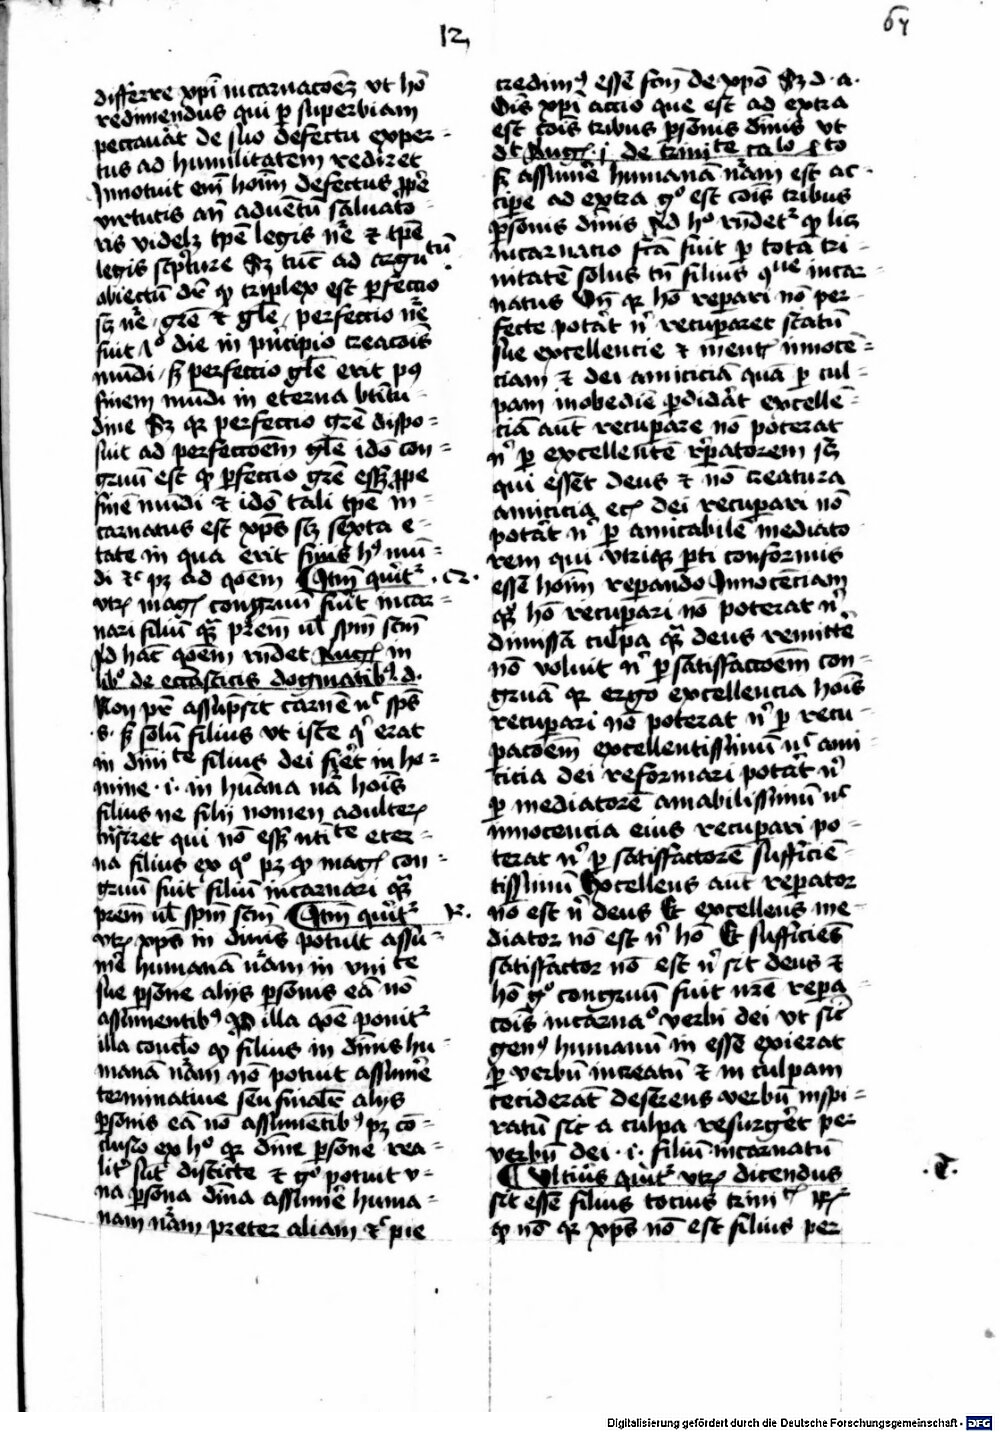 12
64
differre xpi incarnacoēz vt hō
redimendus qui p superbiam
peccauāt de suo defectu exper=
tus ad humilitatem rediret
Innotuit em̄ hoīm defectus ꝓpē
virtutis an̄ aduētū saluato=
ris videlz tpē legis nr̄e ⁊ tpē
legis scpture Sz tūc ad argutū
obiectum dr̄ ꝙ triplex est pfectio
scz nr̄e grē ⁊ glē perfectio nr̄e
fuit 6º die in pncipio creacōis
mūdi / sz perfectio glē erit pꝰ
finem mūdi in eterna btitu=
dine Sz qr perfectio grē dispo=
suit ad perfectōem glē idō con=
gruū est ꝙ pfectio grē essz ꝓpe
finē mūdi ⁊ idō tali tpē in=
carnatus est xp̄s scz sexta e=
tate in qua erit finis hꝰ mū=
di ⁊c pz ad qōem Itm̄ quit̄
vtrum magꝭ congruū fuit incar=
nari filiū qz prēm ul spm̄ scm̄
Ad hāc qōem rn̄det Augꝰ in
libº de ecc̄asticis dogmatibꝰ d.
Non pr̄ assūpsit carnē nc sp̄s
.s. sz solū filius vt iste qi erat
in diuite filius dei fieret in ho=
mine .i. in hūana nā hois
filius ne filij nomen ad alterꝫ
trāsiret qui nō essz nti te eter=
na filius ex qº pz ꝙ magꝭ con=
gruū fuit filiū incarnari qz
prēm ul spm̄ scm̄ Itm̄ quit̄
vtrꝫ xp̄s in diuis potuit assu=
mē humanā nām in vnite
sue psone alijs psonis eā nō
assumentibꝰ Ad illā qōē ponit̄
illa conclo ꝙ filius in diuis hu=
manā nām nō potuit assumē
terminatiue seu finalē alijs
psonis eā nō assumētibꝰ pz cō=
clusio ex hº qr diuē psone rea=
litº sūt distīcte ⁊ gº potuit v=
na psona diuina assumē huma=
nam nām preter aliam ⁊c pie
credimꝰ esse fcm̄ de xpō Sz d. a.
Ois xpi actio que est ad extra
est cōis tribus psonis diuis vt
dt Augꝰ i de trinite calo pto
sz assumē humanā nām est ac=
cipe ad extra gº est cōis tribus
psonis diuis Ad hº rn̄det̄ ꝙ lꝫ
incarnatio fca fuit p totā tri=
nitatē solus tn̄ filius qꝰue incar=
natus Un̄ qr hō repari nō per=
fecte potāt ni recuparet statū
sue excellencie ⁊ mentꝭ innocē=
ciam ⁊ dei amiciciā quā p cul=
pam inobediē pdidāt excellē=
ciā aut̄ recupare nō poterat
ni p excellentē rpatorem scz
qui esset deus ⁊ nō creatura
amicicia ecꝭ dei recupari nō
potāt ni p amicabilē mediato
rem qui vtriqꝫ pti conformis
esset hoīm reparando Innocēciam
qꝫ hō recupari nō poterat ni
dimissa culpa qz deus remittē
nō voluit ni p satisfactōem con=
gruā qr ergo excellencia hois
recupari nō poterat ni p recu=
pacōem excellentissimū nc ami=
cicia dei reformari potāt ni
p mediatorē amabilissimū nc
innocencia eius recupari po=
terat ni p satisfactorē sufficiē=
tissimū Excellens aut̄ reparator
nō est ni deus Et excellens me=
diator nō est ni hō Et sufficiēs
satisfactor nō est ni sit deus ⁊
hō gº congruū fuit nr̄e repa=
cōis incarnaº verbi dei vt sic
genꝰ humanū in esse exierat
p verbū increatū ⁊ in culpam
ceciderat deserens verbū inspi=
ratū sic a culpa resurgēt per
verbū dei .i. filiū incarnatū
Ulteriꝰ quit̄ vtrꝫ dicendus
sit esse filius tocius trinitꝭ
ꝙ nō qr xp̄s nō est filius per